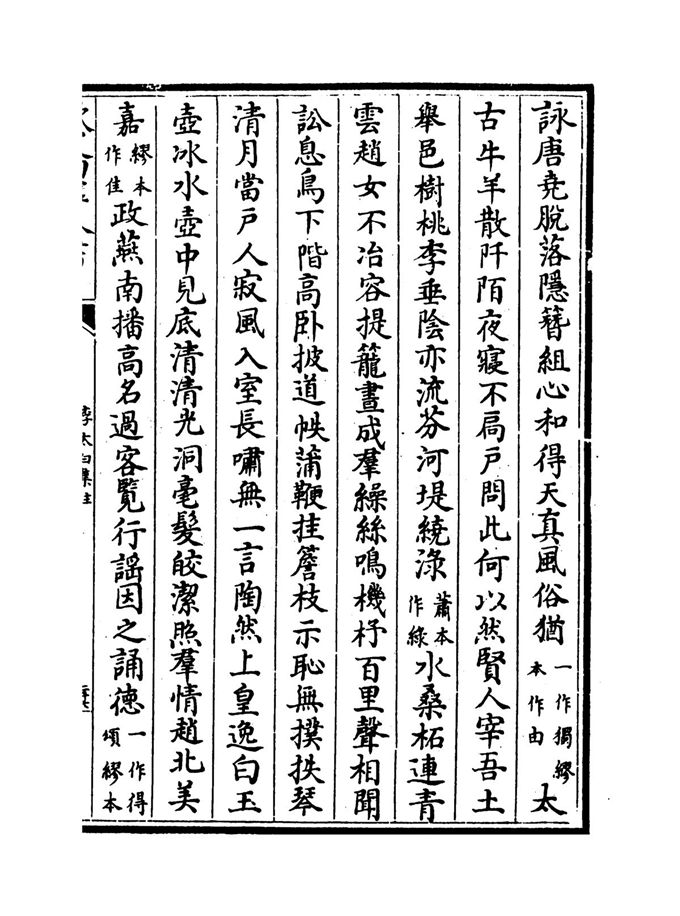 詠唐堯脫落隱簪組心和得天真風俗猶一作獨繆本作由太
古牛羊散阡陌夜寢不扃戶問此何以然賢人宰吾土
舉邑樹桃李垂陰亦流芬河堤繞淥蕭本作綠水桑柘連青
雲趙女不冶容提籠晝成羣繰絲鳴機杼百里聲相聞
訟息鳥下階高卧披道帙蒲鞭挂簷枝示恥無撲抶琴
清月當戶人寂風入室長嘯無一言陶然上皇逸白玉
壺冰水壺中見底清清光洞毫髮皎潔照羣情趙北美
嘉繆本作佳政燕南播高名過客覽行謡因之誦德一作得頌繆本
李太白集注